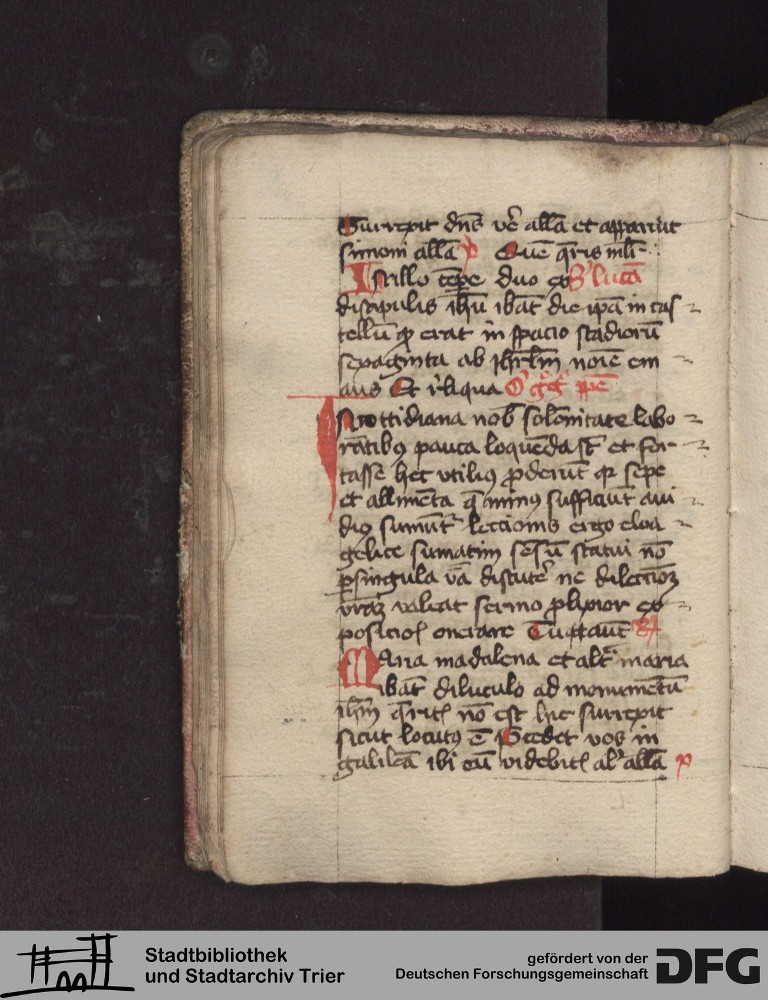 Surrexit dns vere alla et apparuit
simoni alla v Quē q̄ris mlr
In illo tēpe duo ex S lucā
discipulis ihū ibāt die ipa in cas
tellū qd erat in spacio stadiorū
sexaginta ab ihrlm noīe em
aus Et reliqua O' g'g' ppe
In cottidiana nob solōnitate labo
rātibꝰ pauca loquēda sт et for
tasse hec utiliꝰ proderūt qr sepe
et allimēta q̄ minꝰ sufficiūt aui
diꝰ sumūt lectionis ergo ewā
gelice sumatim sēsū statui nō
p singula vā discutere ne dilectionē
vrāz valeat sermo plixior ex
posiciois onerare Tu aūt R
Maria madalena et altᵃ maria
ibāt diluculo ad monumētū
ihm q̄ritis nō est hic surrexit
sicut locutꝰ ē Precedet vos in
galileā ibi eū videbitis al' alla v
Stadtbibliothek
und Stadtarchiv Trier
gefördert von der
Deutschen Forschungsgemeinschaft DFG